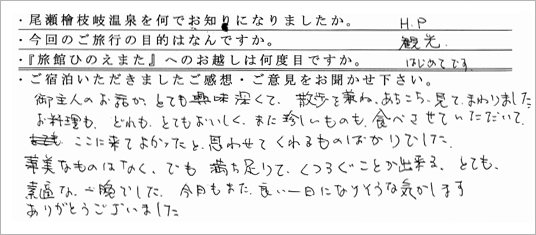 ・尾瀬檜枝岐温泉を何でお知りになりましたか。 H.P
・今回のご旅行の目的はなんですか。 観光.
・『旅館ひのえまた』へのお越しは何度目ですか。 はじめてです。
・ご宿泊いただきましたご感想・ご意見をお聞かせ下さい。
御主人のお話が、とても興味深くて、散歩を兼ね、あちこち、見て、まわりました
お料理も、どれも、とてもおいしく、また珍しいものも、食べさせていただいて、
ここに来てよかったと、思わせてくれるものばかりでした。
華美なものはなく、でも満ち足りて、くつろぐことが出来る、とても、
素適な、一晩でした。今日もまた、良い一日になりそうな気がします
ありがとうございました